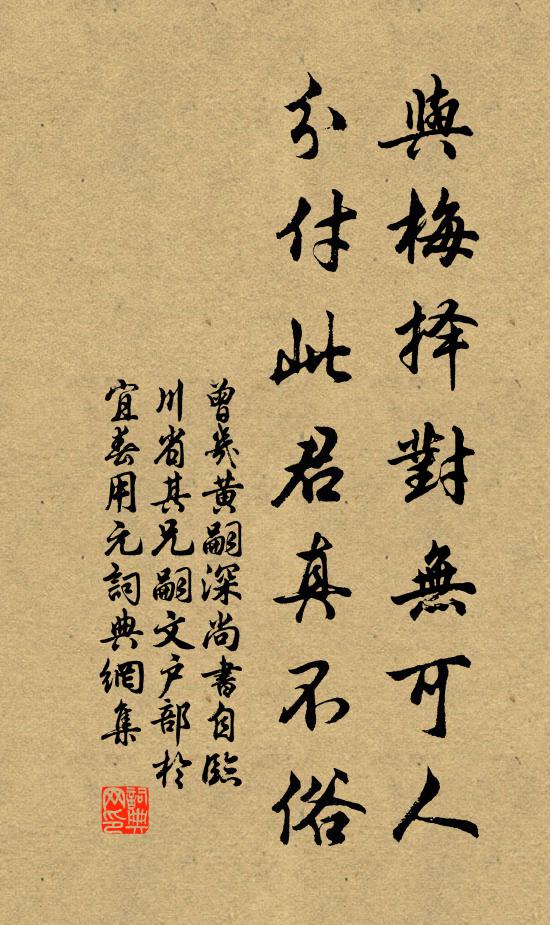 與梅择對無可人
分付此君真不俗
曾幾黄嗣深尚書自臨
川省其兄嗣文户部於
宜春用元詞典網集
詞典网印